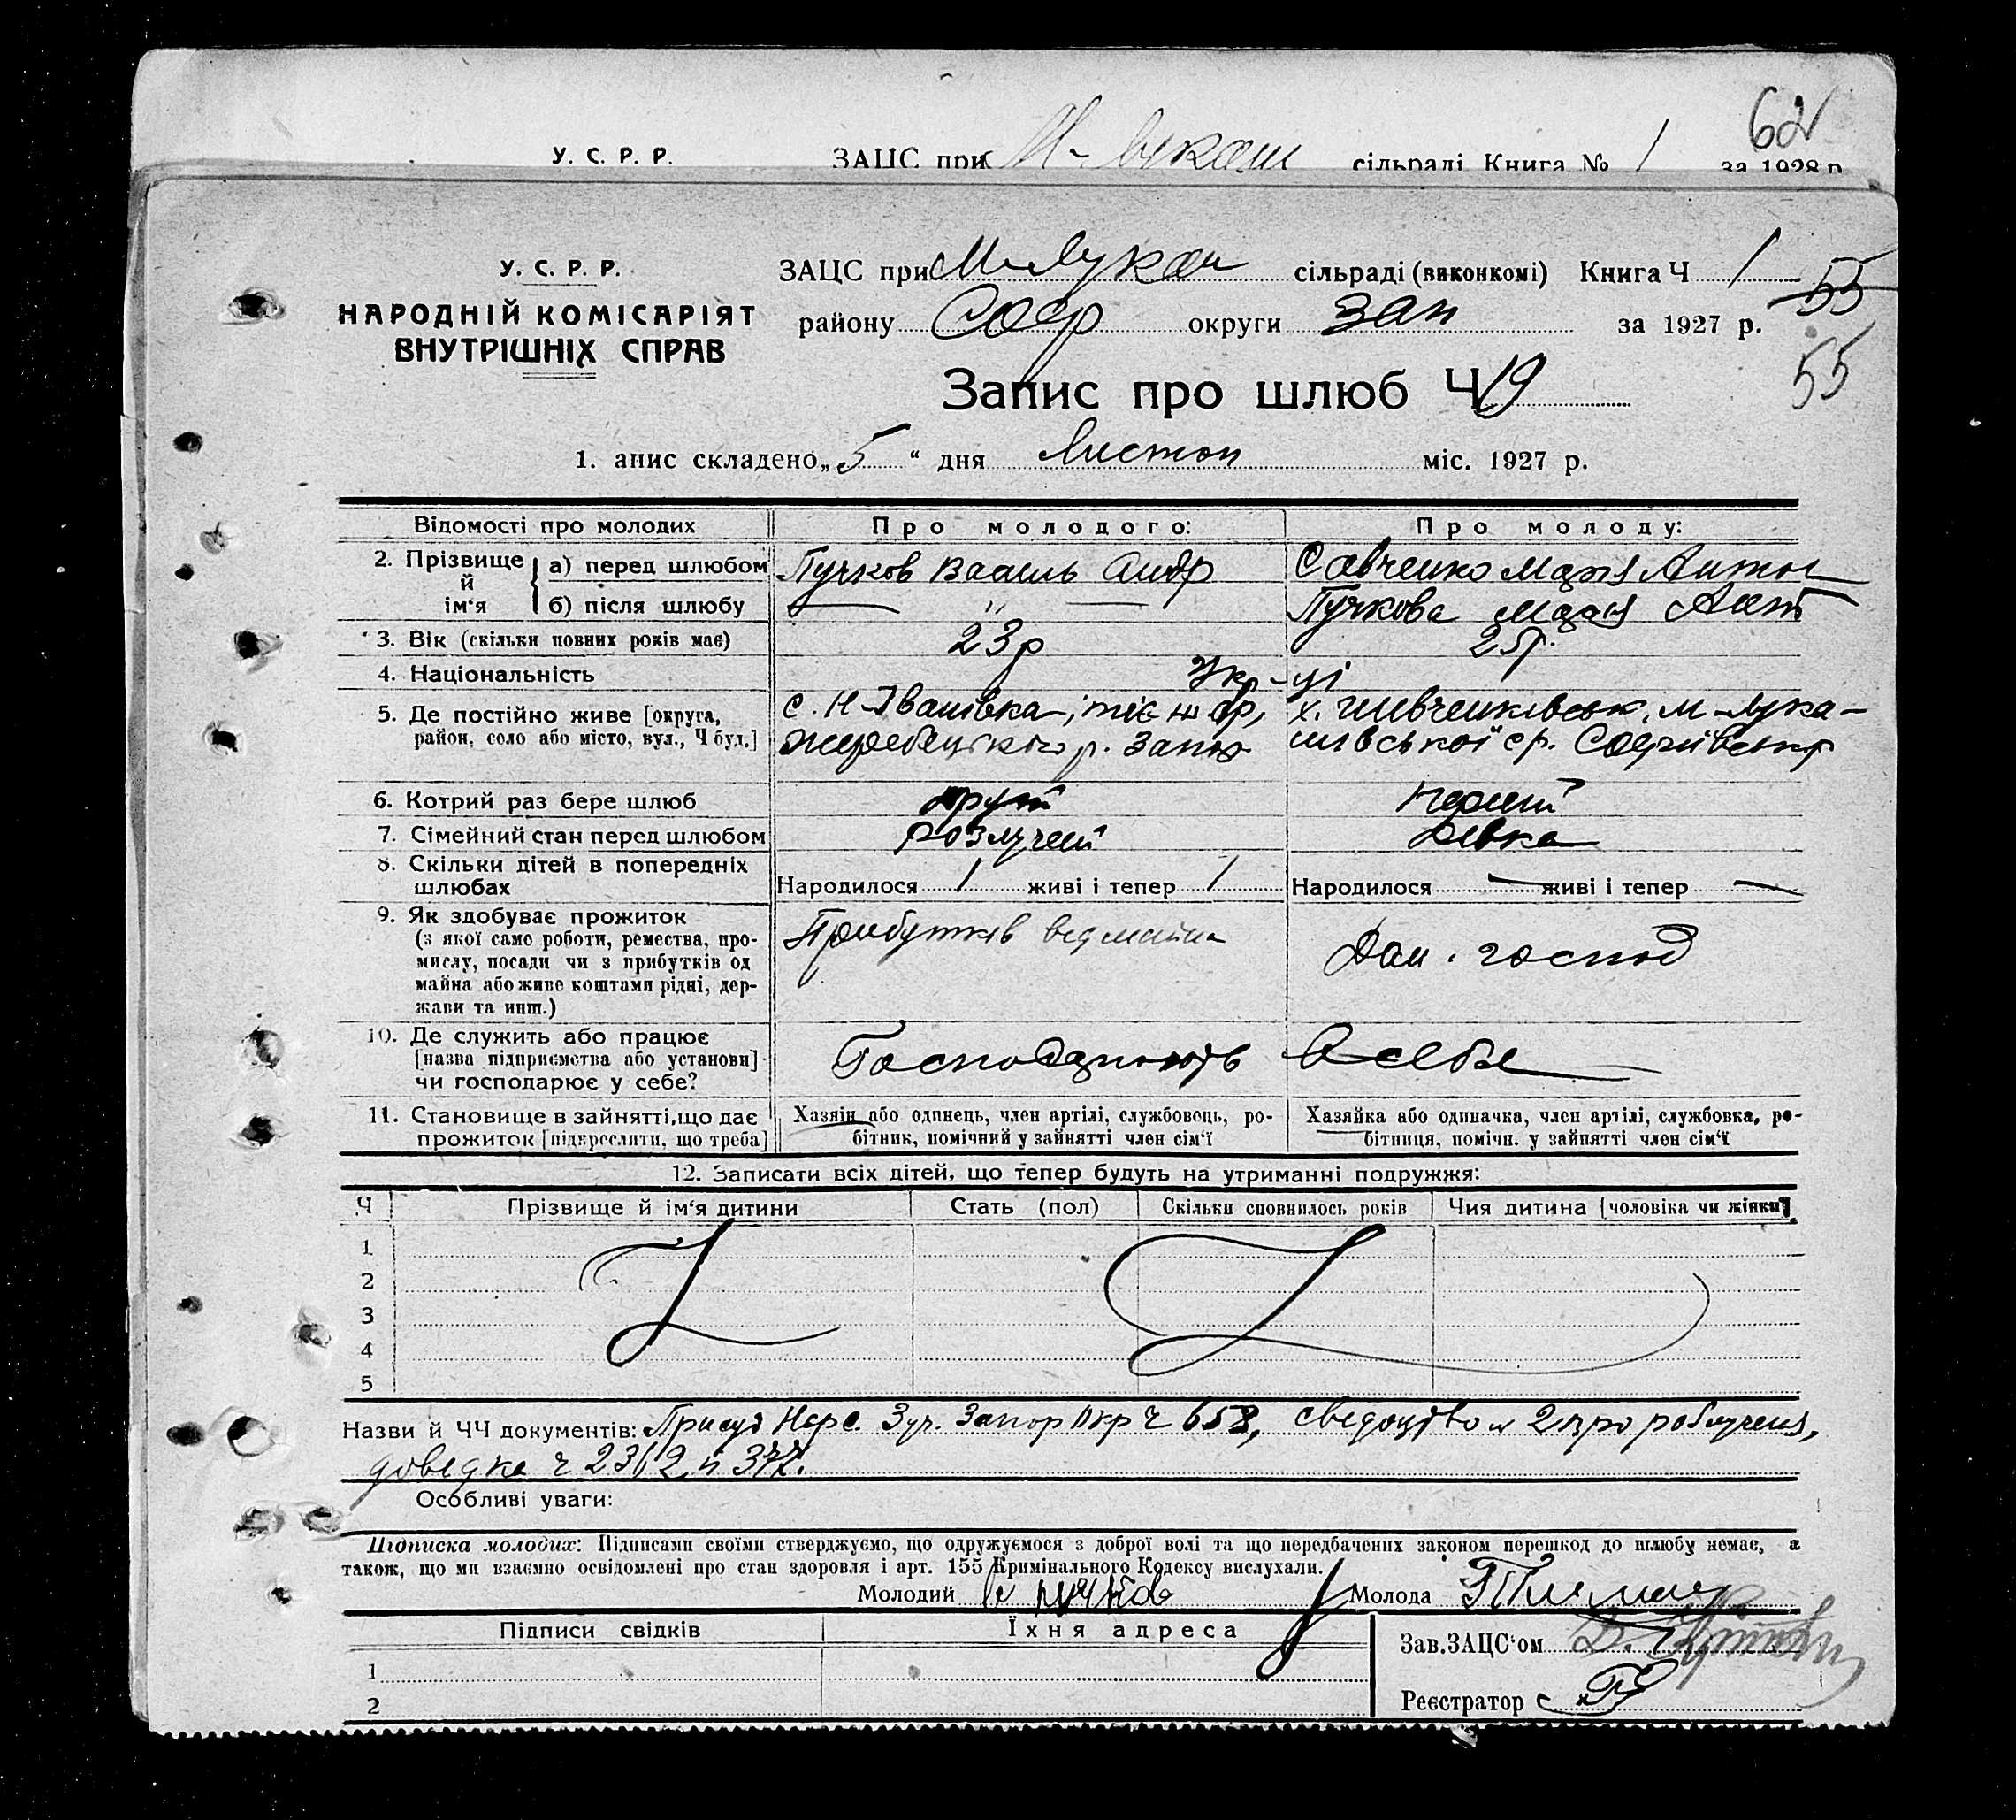 62
У. С. Р. Р. ЗАЦС при М-Лукаш сільраді Книга № 1 за 1928 р.
У. С. Р. Р.
НАРОДНІЙ КОМІСАРІЯТ
ВНУТРІШНІХ СПРАВ
ЗАЦС при М-Лукаш сільраді (виконкомі) Книга Ч 1
55
району Соф округи Зап за 1927 р.
55
Запис про шлюб Ч 19
1. апис складено „5“ дня Листоп міс. 1927 р.
Відомості про молодих Про молодого: Про молоду:
2. Прізвище й ім'я а) перед шлюбом Пучков Василь Андр Савченко Марія Антон
б) після шлюбу — " — Пучкова Марія Ант
3. Вік (скільки повних років має) 23р 25р.
4. Національність Укр-ці
5. Де постійно живе [округа, район, село або місто, вул., Ч буд.]
с. Н-Іванівка, тіє ж ср,
Жеребецького р. Запор
х. Шевченківськ. М-Лука-
шівської с р. Софіївськ р
6. Котрий раз бере шлюб другий Перший
7. Сімейний стан перед шлюбом Розлучений Девка
8. Скільки дітей в попередніх шлюбах Народилося 1 живі і тепер 1 Народилося — живі і тепер —
9. Як здобуває прожиток
(з якої само роботи, ремества, про-
мислу, посади чи з прибутків од
майна або живе коштами рідні, дер-
жави та инш.)
Прибутків від майна
Дом. господ
10. Де служить або працює
[назва підприємства або установи]
чи господарює у себе?
Господарюють в себе
11. Становище в зайнятті, що дає
прожиток [підкреслити, що треба]
Хазяїн або одинець, член артілі, службовець, ро-
бітник, помічний у зайнятті член сім'ї
Хазяйка або одиначка, член артілі, службовка, ро-
бітниця, помічн. у зайнятті член сім'ї
12. Записати всіх дітей, що тепер будуть на утриманні подружжя:
Ч Прізвище й ім'я дитини Стать (пол) Скільки сповнилось років Чия дитина [чоловіка чи жінки]
1
2
3
4
5
Назви й ЧЧ документів: Присуд Нарс. 3 уч. Запор Окр ч 658, сведоцтво 2 про розлучення,
доведка ч 2362 и 377.
Особливі уваги:
Підписка молодих: Підписами своїми стверджуємо, що одружуємося з доброї волі та що передбачених законом перешкод до шлюбу немає, а
також, що ми взаємно освідомлені про стан здоровля і арт. 155 Кримінального Кодексу вислухали.
Молодий Пучков Молода
Підписи свідків Їхня адреса
Зав. ЗАЦС'ом
1
Реєстратор
2